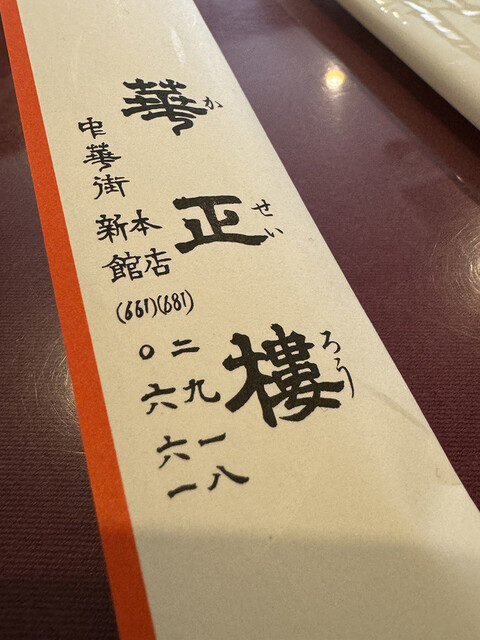 華正樓
かせいろう
中華街
本店(681)二九一八
新館(661)〇六六一